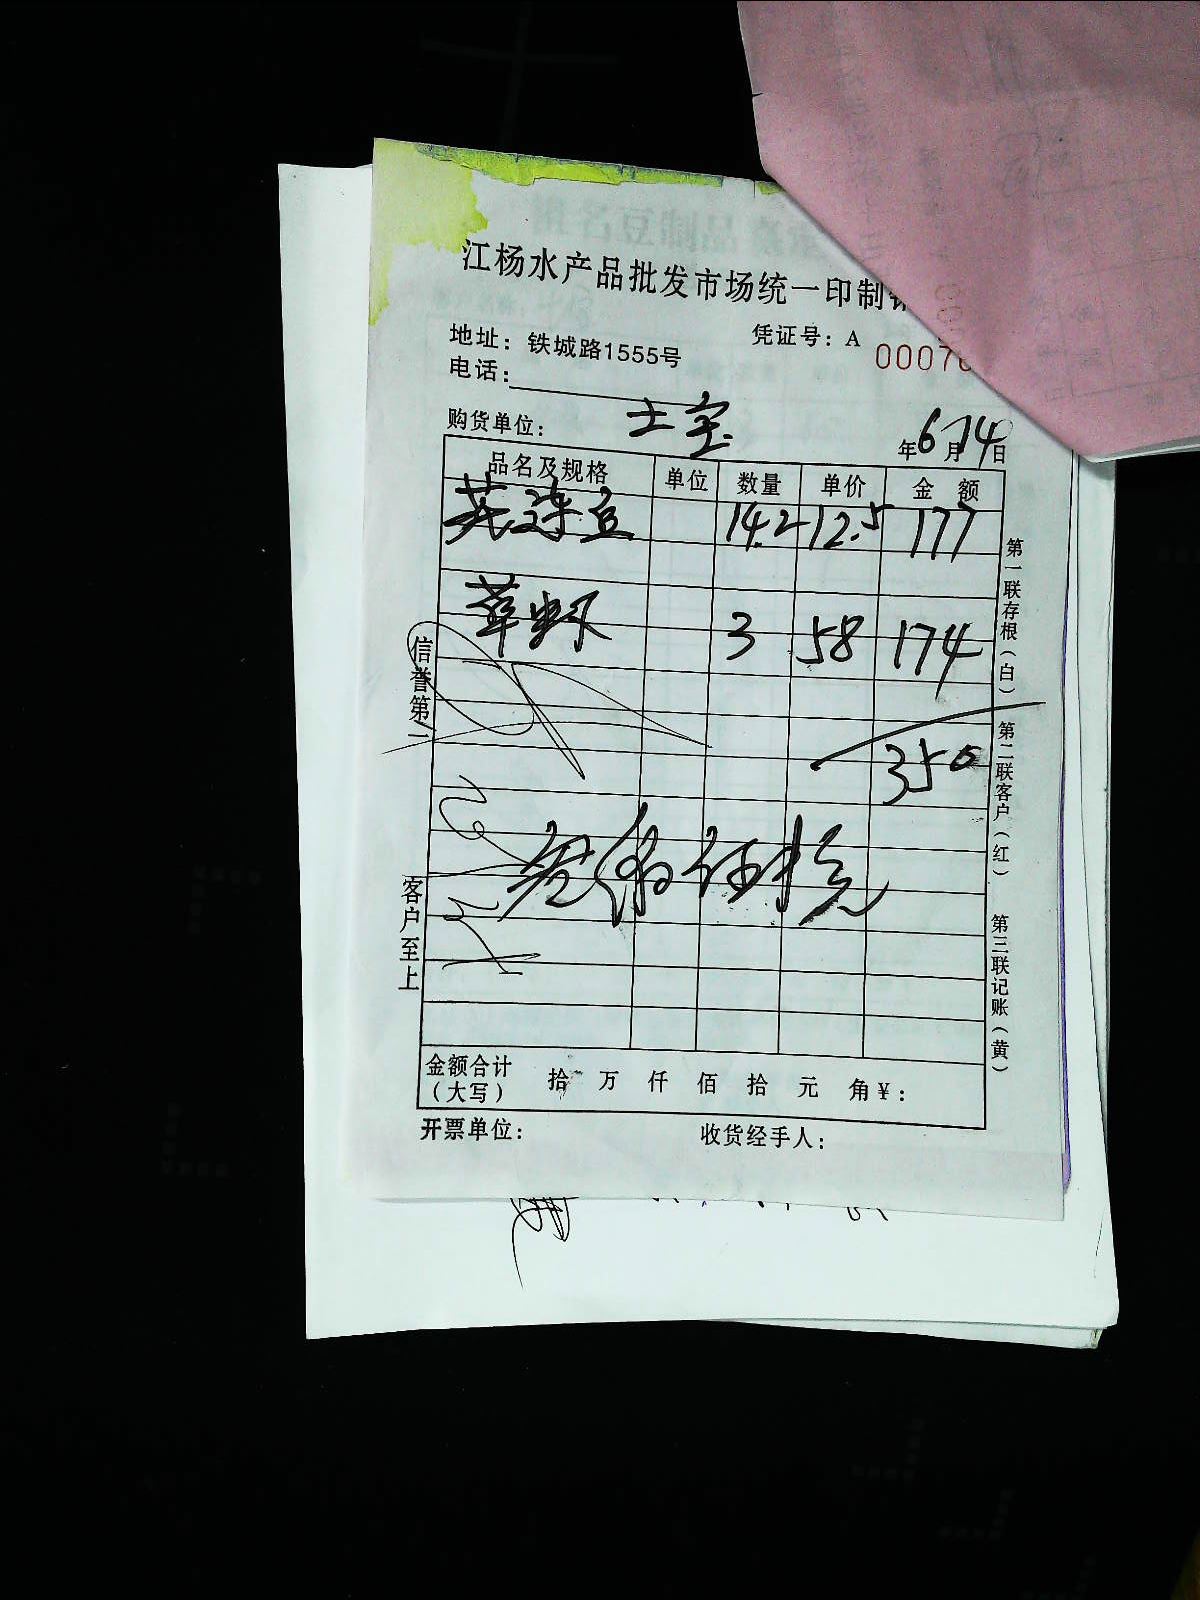 江杨水产品批发市场统一印制
地址：铁城路1555号 凭证号：A 00076
电话：
购货单位： 土宝 年6月14日
品名及规格 单位 数量 单价 金额
豆 14.2 12.5 177
草虾 3 58 174
350
信誉第一
客户至上
第一联存根（白） 第二联客户（红） 第三联记账（黄）
金额合计（大写） 拾 万 仟 佰 拾 元 角 ¥：
开票单位： 收货经手人：